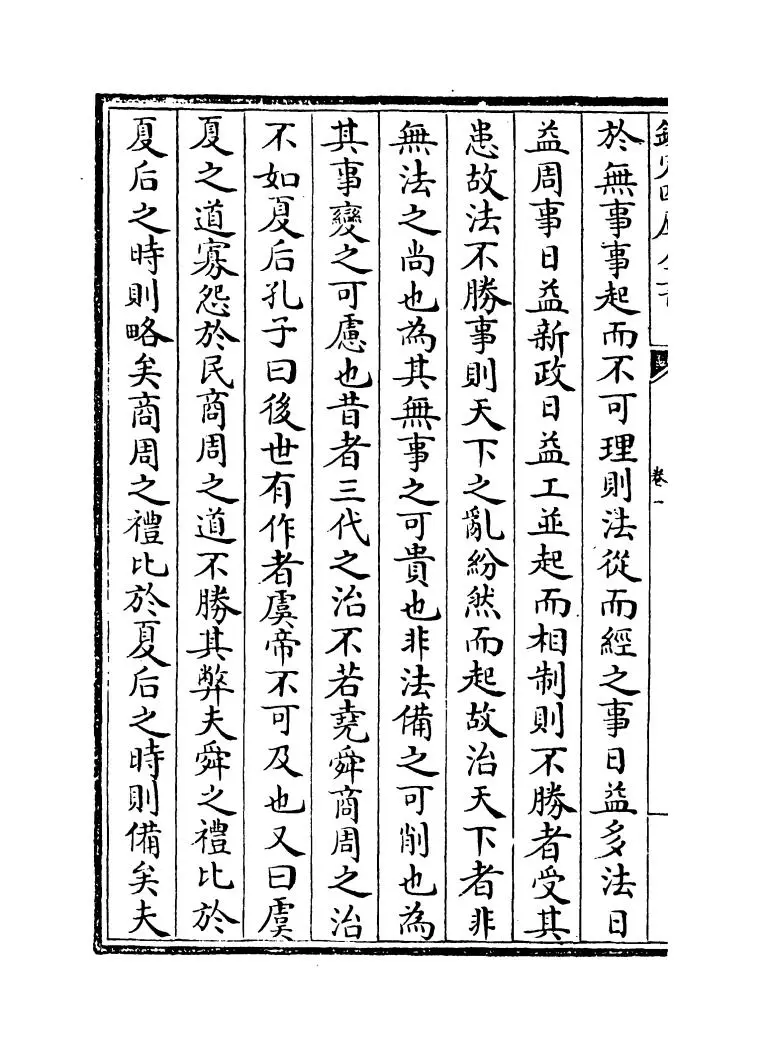 欽定四庫全書
卷一
於無事事起而不可理則法從而經之事日益多法日
益周事日益新政日益工並起而相制則不勝者受其
患故法不勝事則天下之亂紛然而起故治天下者非
無法之尚也為其無事之可貴也非法備之可削也為
其事變之可慮也昔者三代之治不若堯舜商周之治
不如夏后孔子曰後世有作者虞帝不可及也又曰虞
夏之道寡怨於民商周之道不勝其弊夫舜之禮比於
夏后之時則略矣商周之禮比於夏后之時則備矣夫